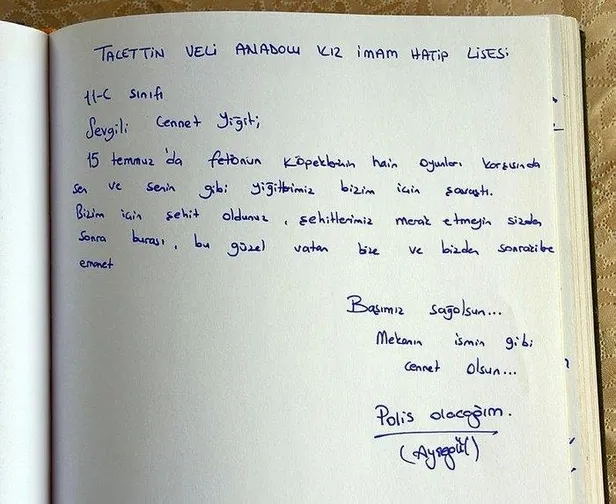 TACETTİN VELİ ANADOLU KIZ İMAM HATİP LİSESİ
11-C sınıfı
Sevgili Cennet Yiğit;
15 temmuz'da fetönun köpeklerinin hain oyunları karşısında
sen ve senin gibi yiğitlerimiz bizim için savaştı.
Bizim için şehit oldunuz, şehitlerimiz merak etmeyin sizden
sonra burası, bu güzel vatan bize ve bizden sonrakibe
emanet
Başımız sağolsun...
Mekanın ismin gibi
cennet olsun...
Polis olacağım.
(Ayşegül)